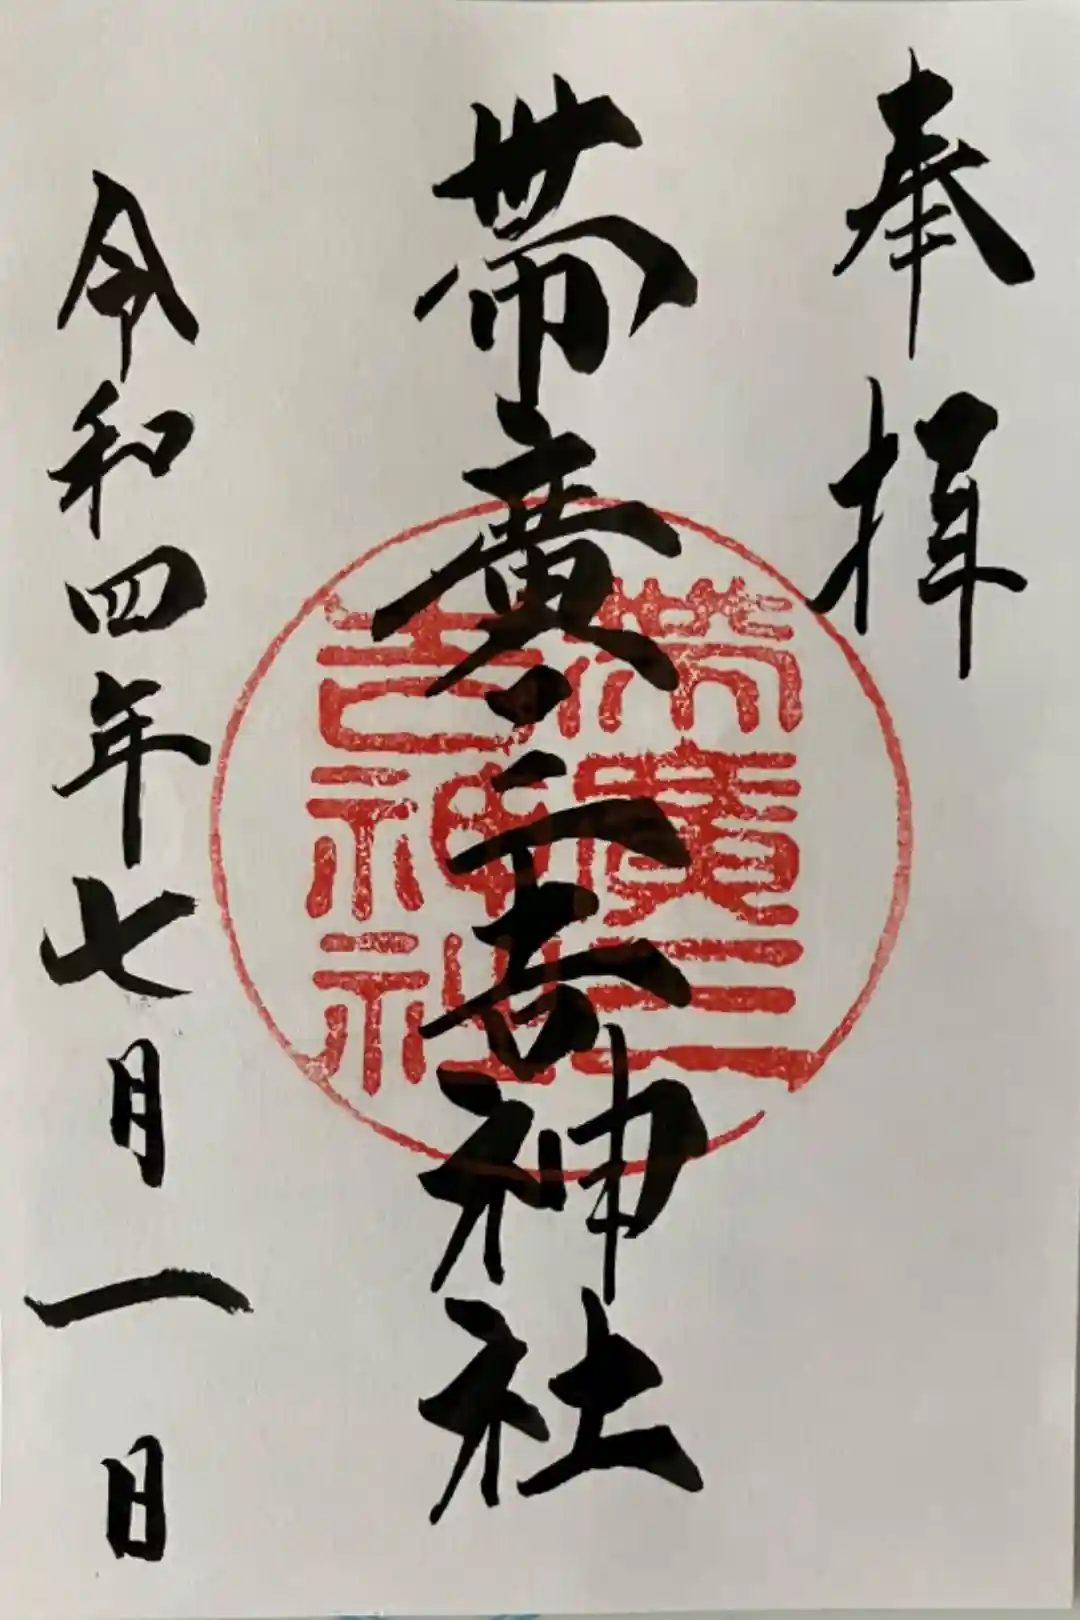 奉拝
帯廣三吉神社
帯廣三
吉神社
令和四年七月一日